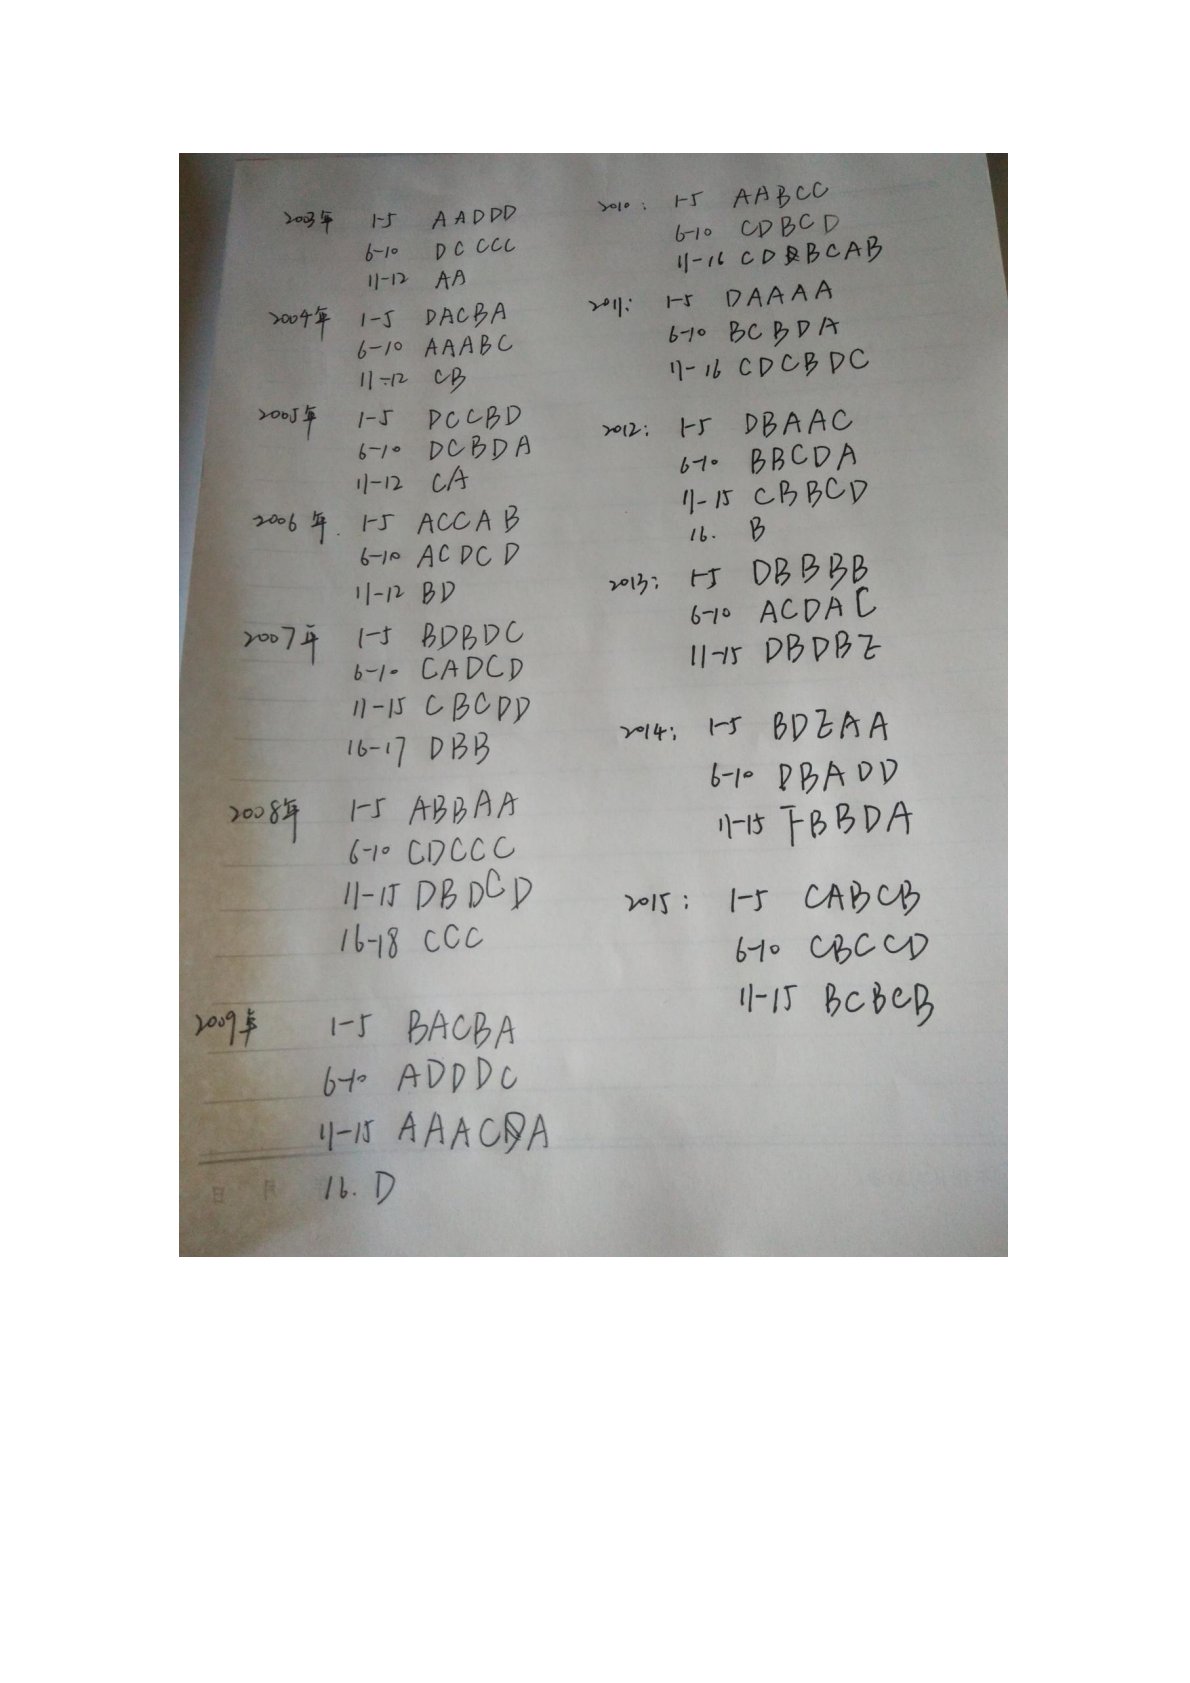 2003年 1-5 AADDD
6-10 DCCCC
11-12 AA
2004年 1-5 DACBA
6-10 AAABC
11-12 CB
2005年 1-5 DCCBD
6-10 DCBDA
11-12 CA
2006年. 1-5 ACCAB
6-10 ACDCD
11-12 BD
2007年 1-5 BDBDC
6-10 CADCD
11-15 CBCDD
16-17 DBB
2008年 1-5 ABBAA
6-10 CDCCC
11-15 DBDCD
16-18 CCC
2009年 1-5 BACBA
6-10 ADDDC
11-15 AAACA
16. D
日 月
2010: 1-5 AABCC
6-10 CDBCD
11-16 CDBCAB
2011: 1-5 DAAAA
6-10 BCBDA
11-16 CDCBDC
2012: 1-5 DBAAC
6-10 BBCDA
11-15 CBBCD
16. B
2013: 1-5 DBBBB
6-10 ACDAC
11-15 DBDB
2014: 1-5 BDAA
6-10 DBADD
11-15 BBDA
2015: 1-5 CABCB
6-10 CBCCD
11-15 BCBCB